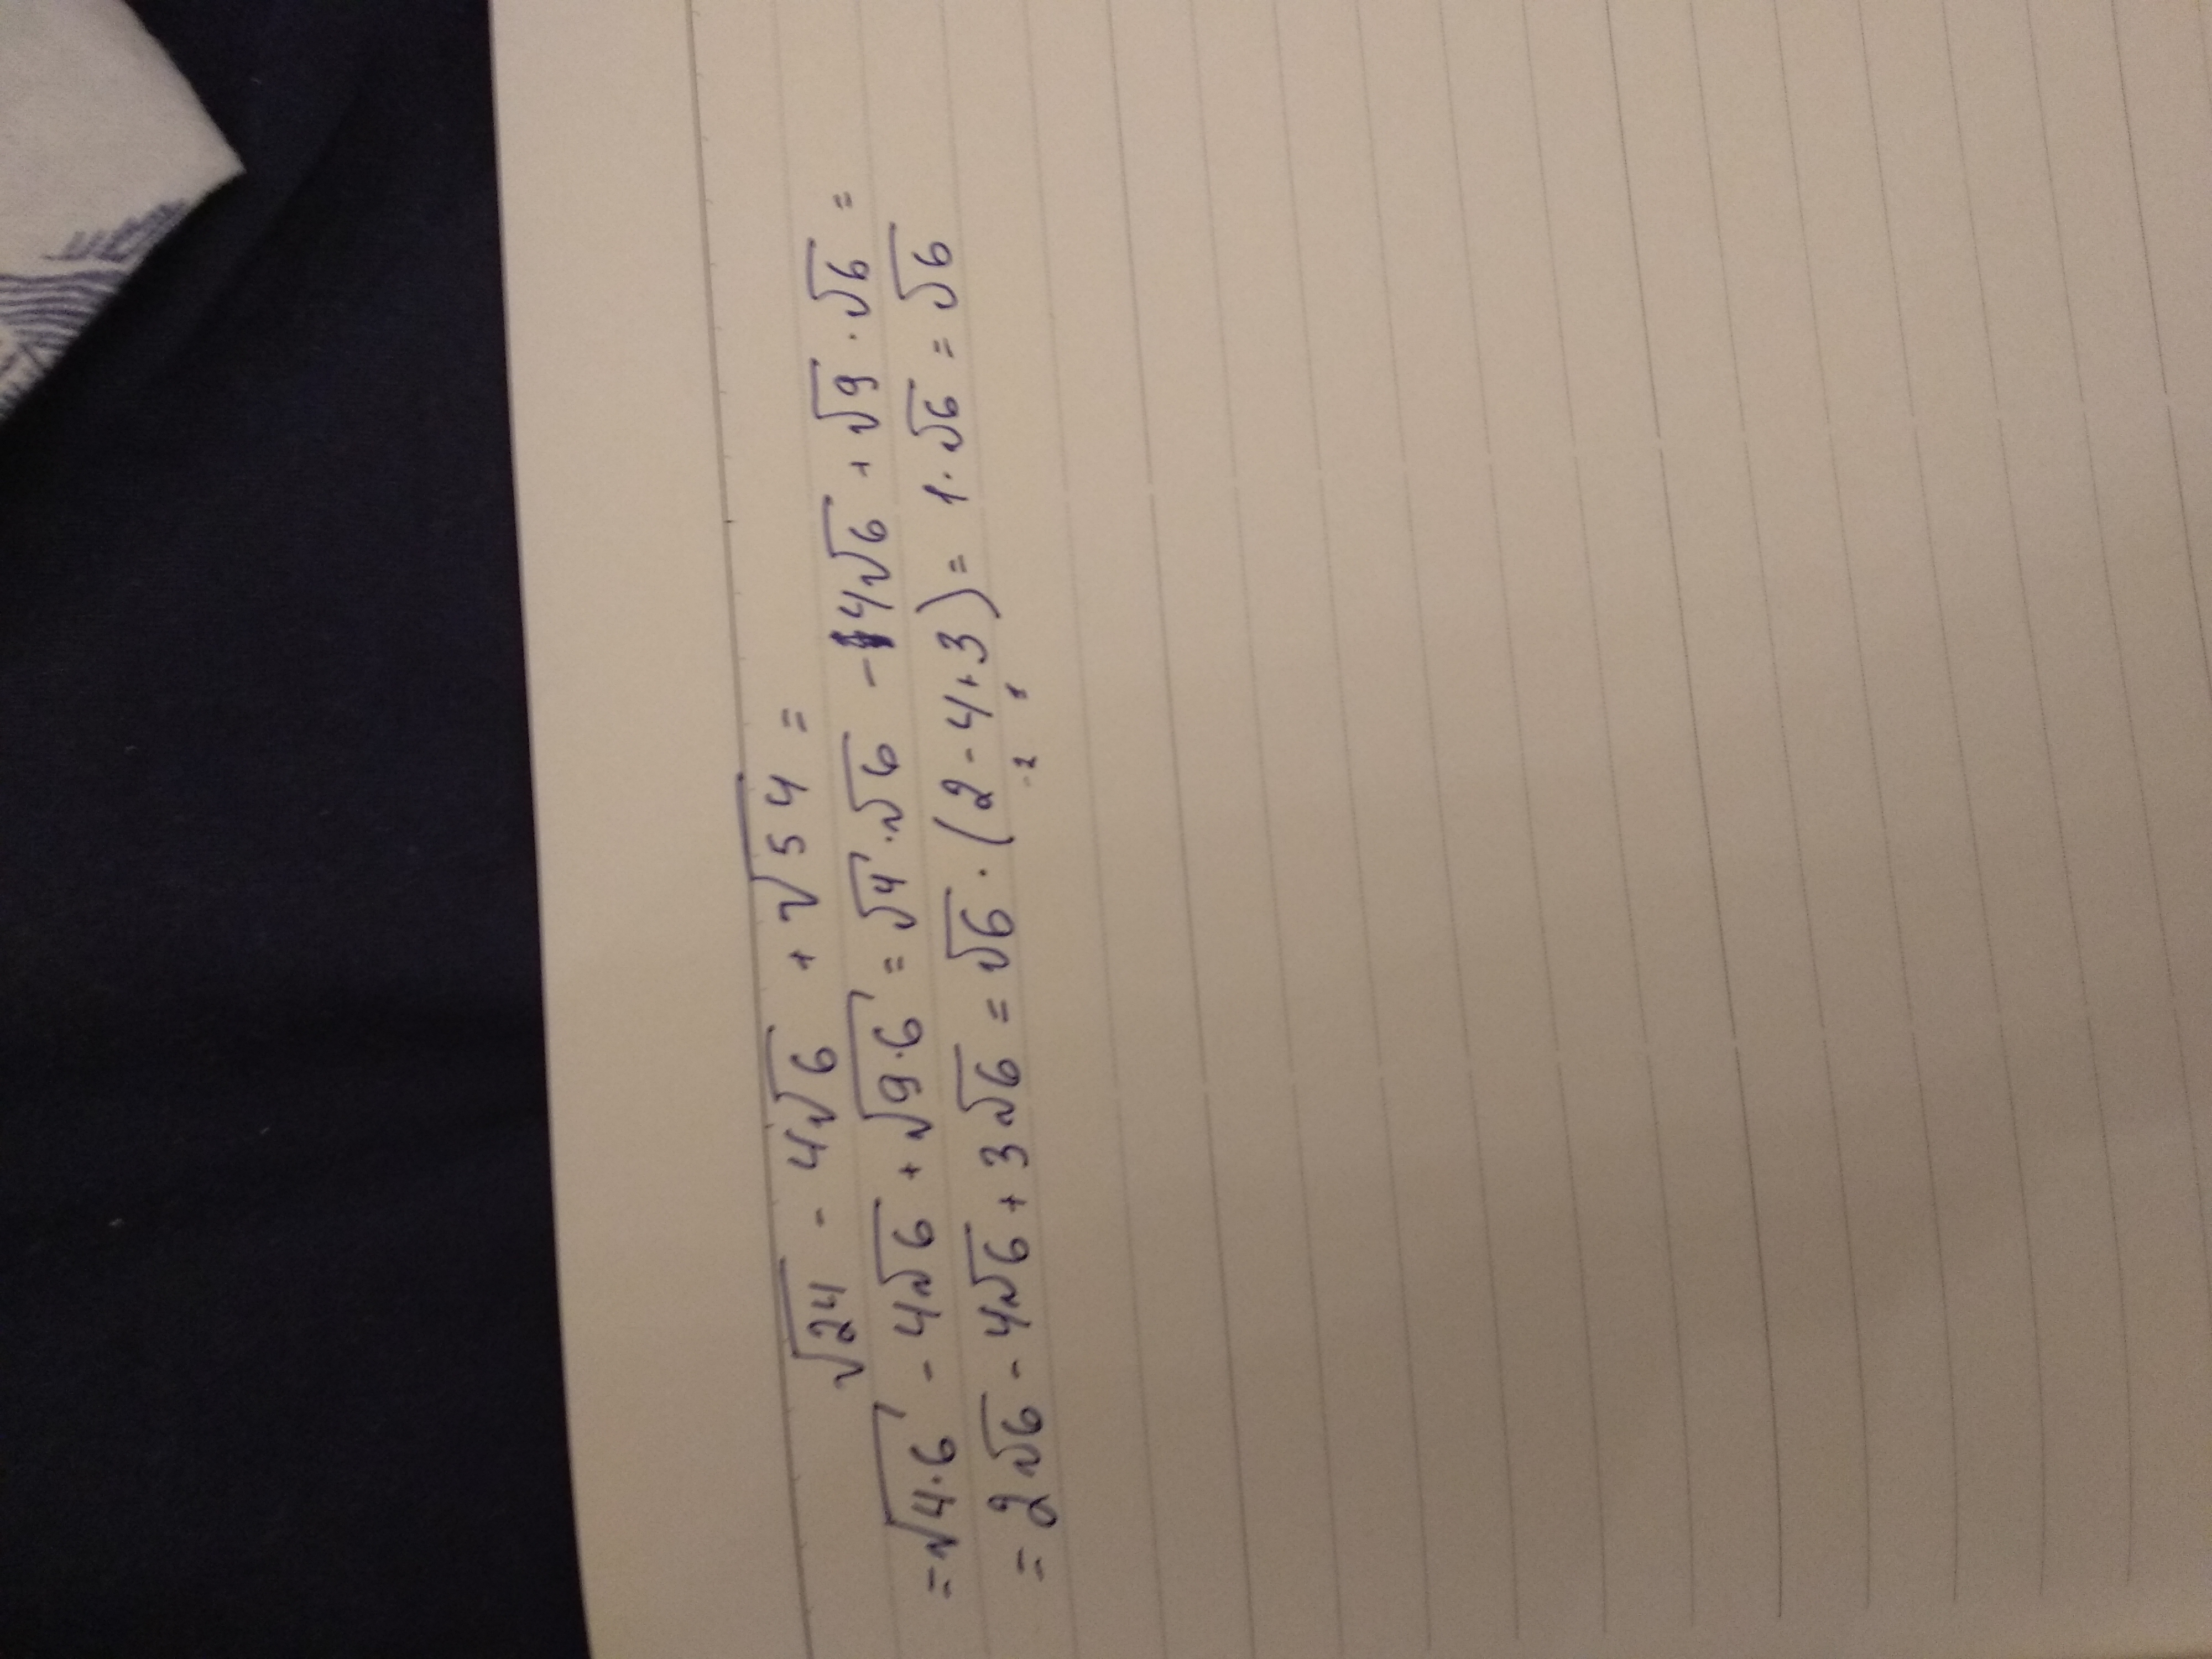 √24 - 4√6 + √54 =
= √4·6 - 4√6 + √9·6 = √4·√6 - 4√6 + √9·√6 =
= 2√6 - 4√6 + 3√6 = √6·(2-4+3) = 1·√6 = √6